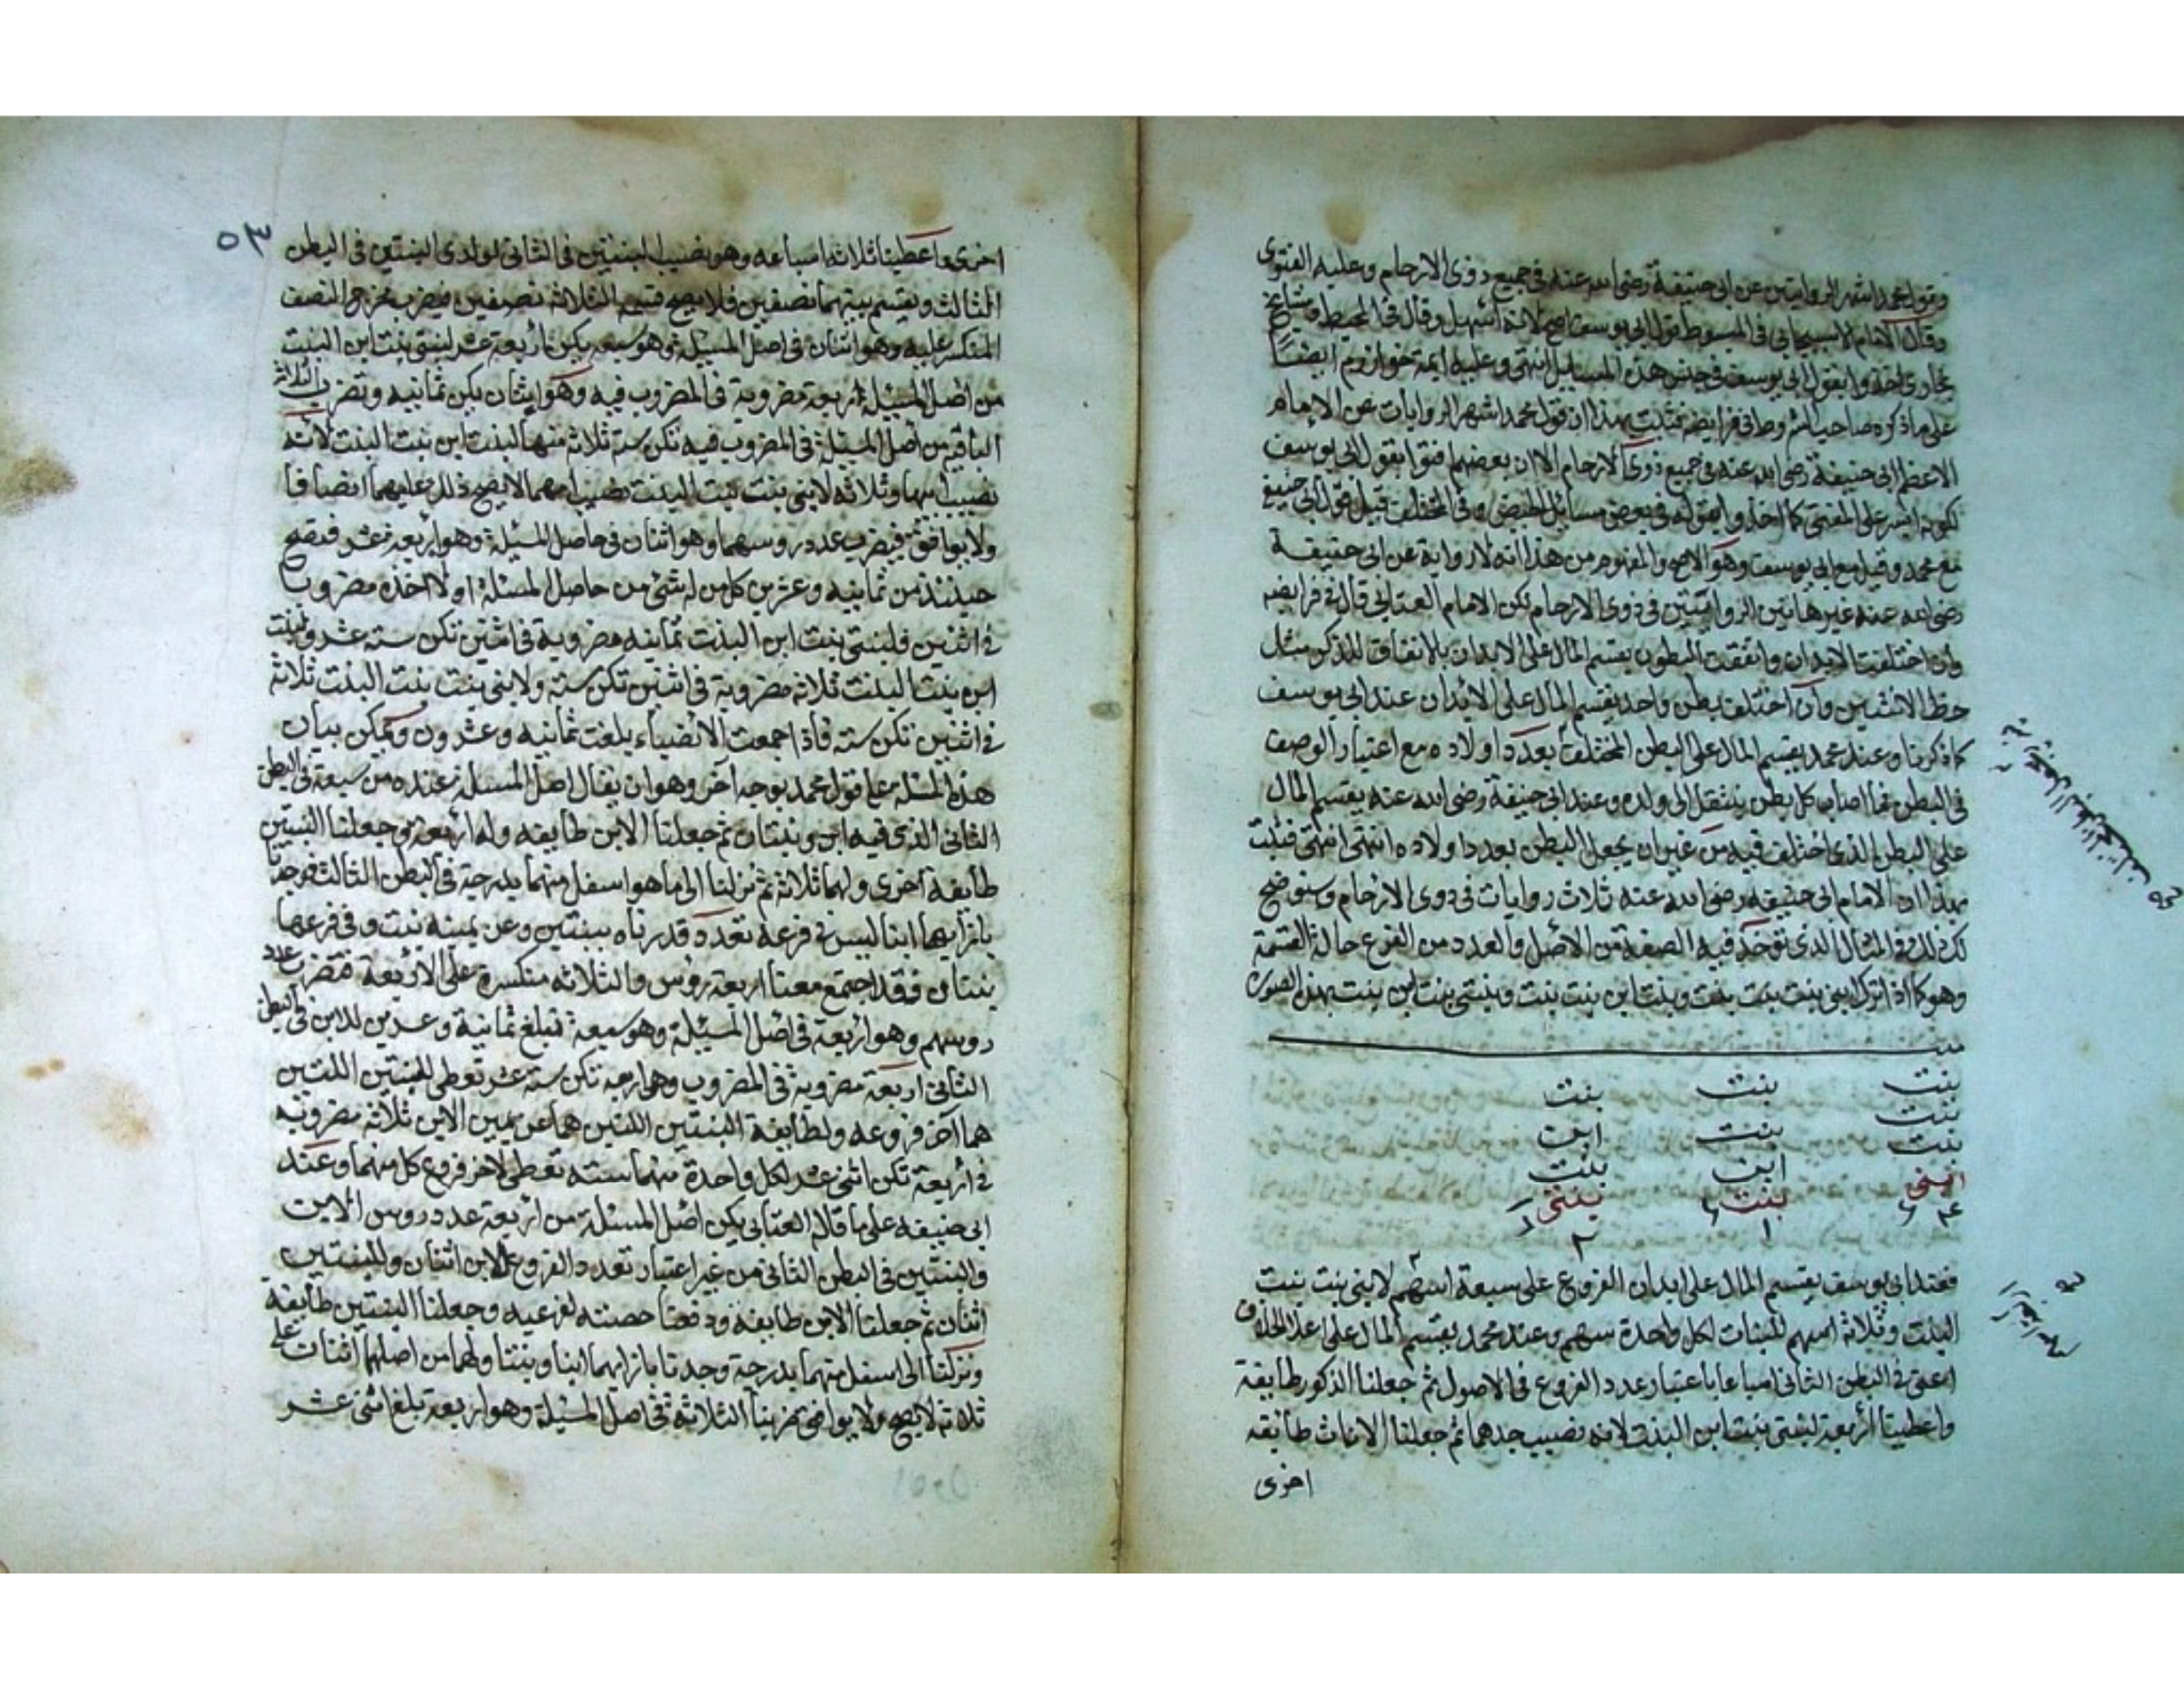 وقول محمد اشهر الروايتين عن ابى حنيفة رضى الله عنه فى جميع ذوى الارحام وعليه الفتوى
وقال الامام الاسبيجابى فى المبسوط قول ابى يوسف اصح لانه اسهل وقال فى المحيط ومشايخ
بخارى اخذوا بقول ابى يوسف فى جنس هذه المسايل انتهى وعليه ايمة خوارزم ايضا
على ما ذكره صاحب فى فرايضه فثبت بهذا ان قول محمد اشهر الروايات عن الامام
الاعظم ابى حنيفة رضى الله عنه فى جميع ذوى الارحام الا ان بعضهم افتوا بقول ابى يوسف
لكونه ايسر على المفتى كما اخذوا بقوله فى بعض مسائل الحيض وفى المختلف قيل قول ابى حنيفة
مع محمد وقيل مع ابى يوسف وهو الاصح والمفهوم من هذا انه لا رواية عن ابى حنيفة
رضى الله عنه غير هاتين الروايتين فى ذوى الارحام لكن الامام العتابى قال فى فرايضه
وان اختلفت الابدان واتفقت البطون يقسم المال على الابدان بالاتفاق للذكر مثل
حظ الانثيين وان اختلف بطن واحد يقسم المال على الابدان عند ابى يوسف
كما ذكرنا وعند محمد يقسم المال على البطن المختلف بعدد اولاده مع اعتبار الوصف
فى البطن فما اصاب كل بطن ينتقل الى ولده وعند ابى حنيفة رضى الله عنه يقسم المال
على البطن الذى اختلف فيه من غير ان يجعل البطن بعدد اولاده انتهى انتهى فثبت
بهذا ان الامام ابى حنيفه رضى الله عنه ثلاث روايات فى ذوى الارحام وسنوضح
لك ذلك فى المثال الذى توخذ فيه الصفة من الاصل والعدد من الفرع حالة القسمة
وهو كما اذا ترك ابنى بنت بنت بنت وبنت ابن بنت بنت وبنتى بنت ابن بنت بهذه الصورة
ميت
بنت بنت بنت
بنت بنت ابن
بنت ابن بنت
ابنى بنت بنتى
٤ ١ ٢
فعند ابى يوسف يقسم المال على ابدان الفروع على سبعة اسهم لابنى بنت بنت
البنت وثلاثة اسهم للبنات لكل واحدة سهم وعند محمد يقسم المال على اعلا الخلاف
اعنى فى البطن الثانى اسباعا باعتبار عدد الفروع فى الاصول ثم جعلنا الذكور طايفة
واعطينا الاربعة لبنتى بنت ابن البنت لانه نصيب جدهما ثم جعلنا الاناث طايفة
اخرى
٥٣
اخرى واعطينا ثلاثة اسباعه وهو نصيب البنتين فى الثانى لولدى البنتين فى البطن
الثالث ويقسم بينهما نصفين فلا يصح قسمة الثلاثة نصفين فيضرب مخرج النصف
المنكسر عليه وهو اثنان فى اصل المسيلة وهو سبعه يكن اربعة عشر لبنتى بنت ابن البنت
من اصل المسيلة اربعة مضروبة فى المضروب فيه وهو اثنان يكن ثمانيه وتضرب الثلاثة
الباقى من اصل المسيلة فى المضروب فيه تكن ستة ثلاثة منها لبنت ابن بنت البنت لانه
نصيب ابيها وثلاثه لابنى بنت بنت البنت نصيب امهما لا يصح ذلك عليهما انصافا
ولا يوافق فيضرب عدد روسهما وهو اثنان فى حاصل المسيلة وهو اربعة عشر فتصح
حينئذ من ثمانيه وعشرين كل من له شئ من حاصل المسئلة اولا اخذه مضروبا
فى اثنين فلبنتى بنت ابن البنت ثمانيه مضروبة فى اثنين تكن ستة عشر ولبنت
ابن بنت البنت ثلاثه مضروبة فى اثنين تكن سته ولابنى بنت بنت البنت ثلاثة
فى اثنين تكن سته فاذا جمعت الانصباء بلغت ثمانيه وعشرون ويمكن بيان
هذه المسئلة على قول محمد بوجه آخر وهو ان يقال اصل المسيلة عنده من سبعة فى البطن
الثانى الذى فيه ابن وبنتان ثم جعلنا الابن طايفه وله اربعة وجعلنا البنتين
طايفة اخرى ولهما ثلاثة ثم نزلنا الى ما هو اسفل منهما بدرجة فى البطن الثالث فوجدنا
بازايهما ابنا ليس فى فرعه تعدد قدرناه ببنتين وعن يمينه بنت وفى فرعها
بنتان فقد اجتمع معنا اربعة روس والثلاثه منكسرة على الاربعة فتضرب عدد
روسهم وهو اربعة فى اصل المسيلة وهو سبعة تبلغ ثمانية وعشرين للابن فى البطن
الثانى اربعة مضروبة فى المضروب وهو اربعه تكن ستة عشر تعطى للبنتين اللتين
هما آخر فروعه ولطايفة البنتين اللتين هما عن يمين الابن ثلاثة مضروبة
فى اربعة تكن اثنى عشر لكل واحدة منهما ستة تعطى لاخر فروع كل منهما وعند
ابى حنيفه على ما قال العتابى يكن اصل المسئلة من اربعة عدد روس الابن
والبنتين فى البطن الثانى من غير اعتبار تعدد الفروع للابن اثنان وللبنتين
اثنان ثم جعلنا الابن طايفة ودفعنا حصته لفرعيه وجعلنا البنتين طايفة
ونزلنا الى اسفل منهما بدرجة وجدنا بازايهما ابنا وبنتا ولهما من اصلهما اثنان على
ثلاثة لا يصح ولا يوافق ضربنا الثلاثة فى اصل المسيلة وهو اربعة تبلغ اثنى عشر